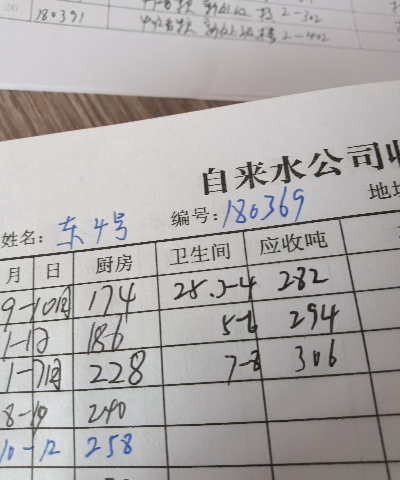 180391 2-302
2-402
自来水公司收
姓名: 东4号 编号: 180369 地址
月 日 厨房 卫生间 应收吨
9-10月 174 25.3-4 282
1-12 186 5-6 294
1-7月 228 7-8 306
8-10 240
10-12 258